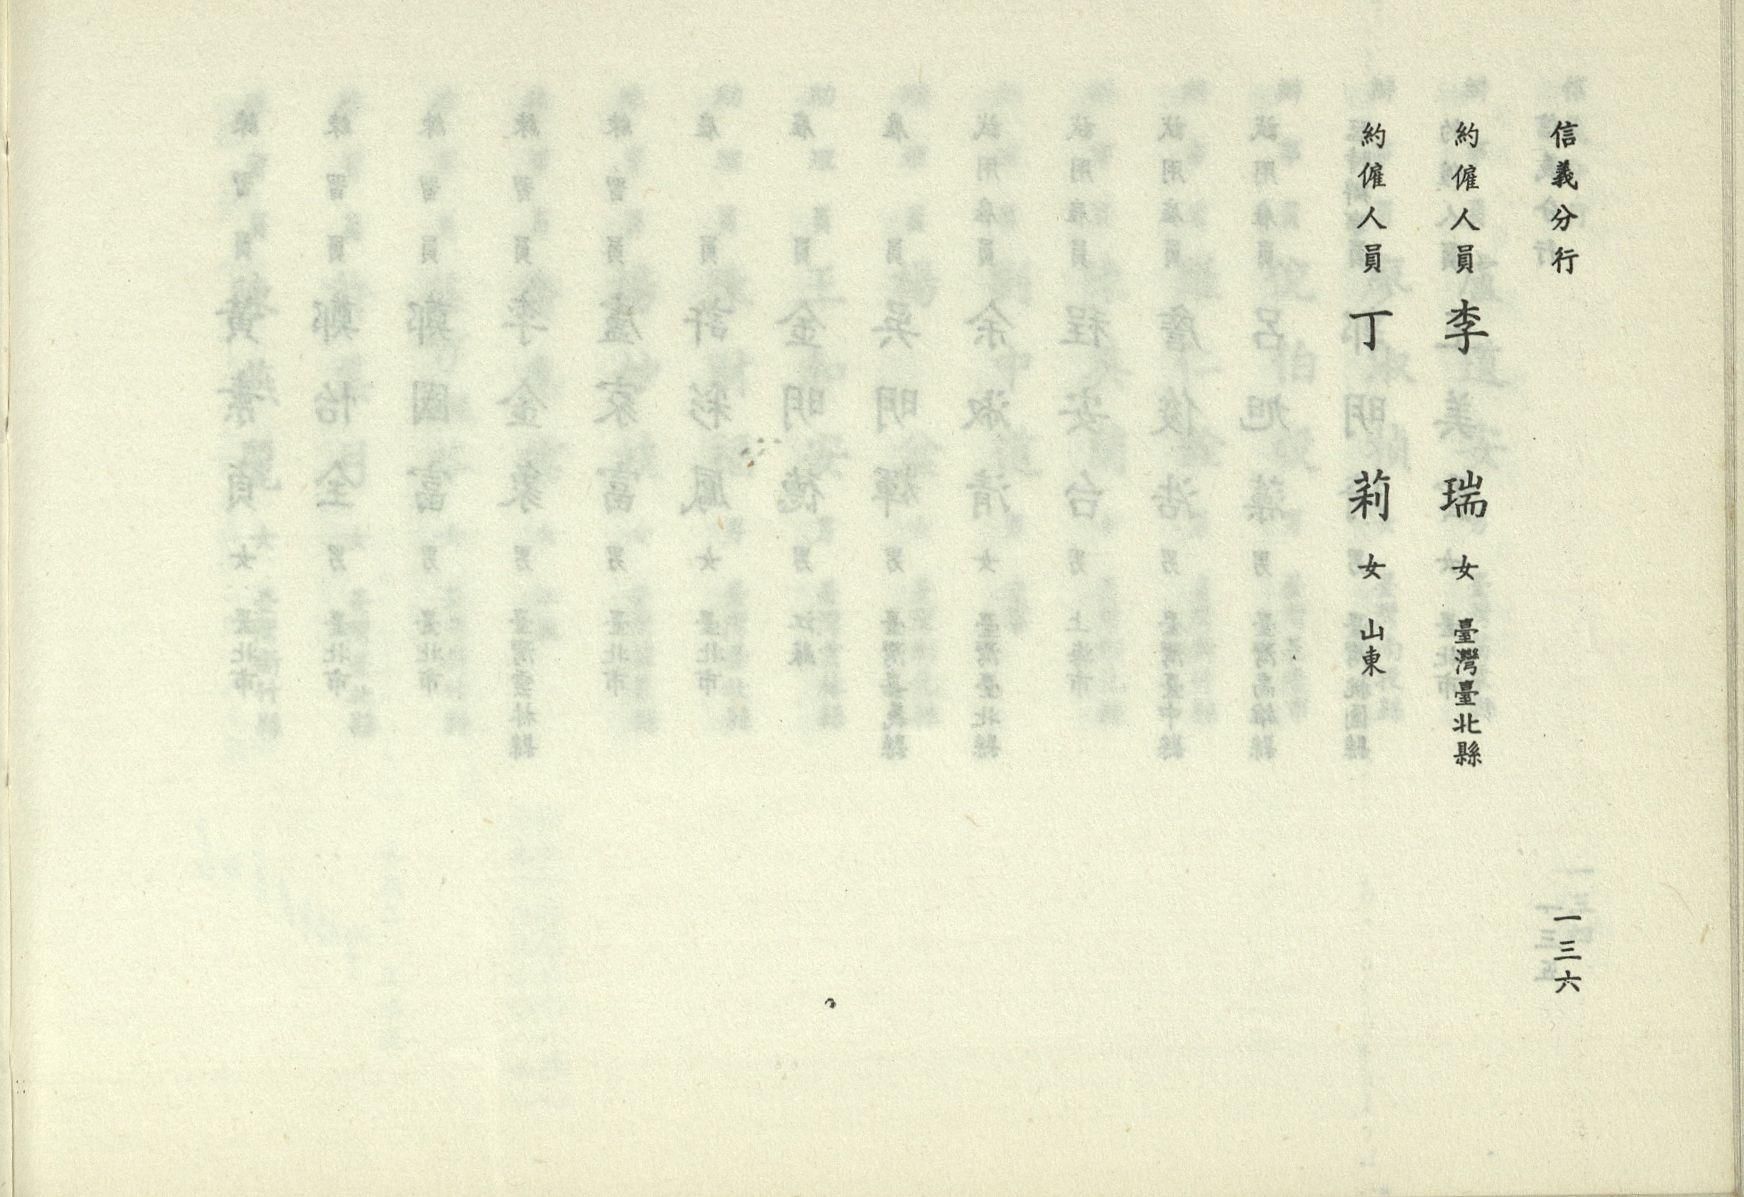 信義分行
一三六
約僱人員 李瑞 女 臺灣臺北縣
約僱人員 丁莉 女 山東